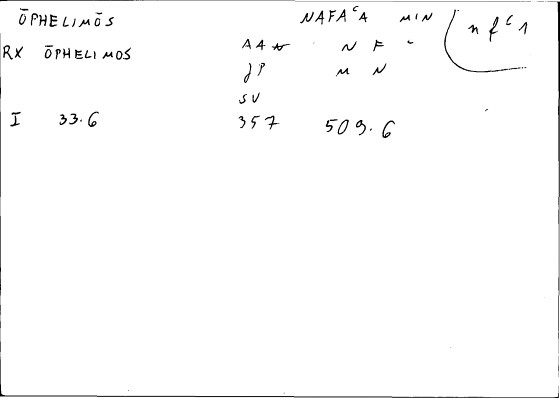 ŌPHELIMŌS NAFAᶜA MIN n f ᶜ 1
RX ŌPHELIMOS AAN N F ᶜ
JP M N
SV
I 33.6 357 509.6